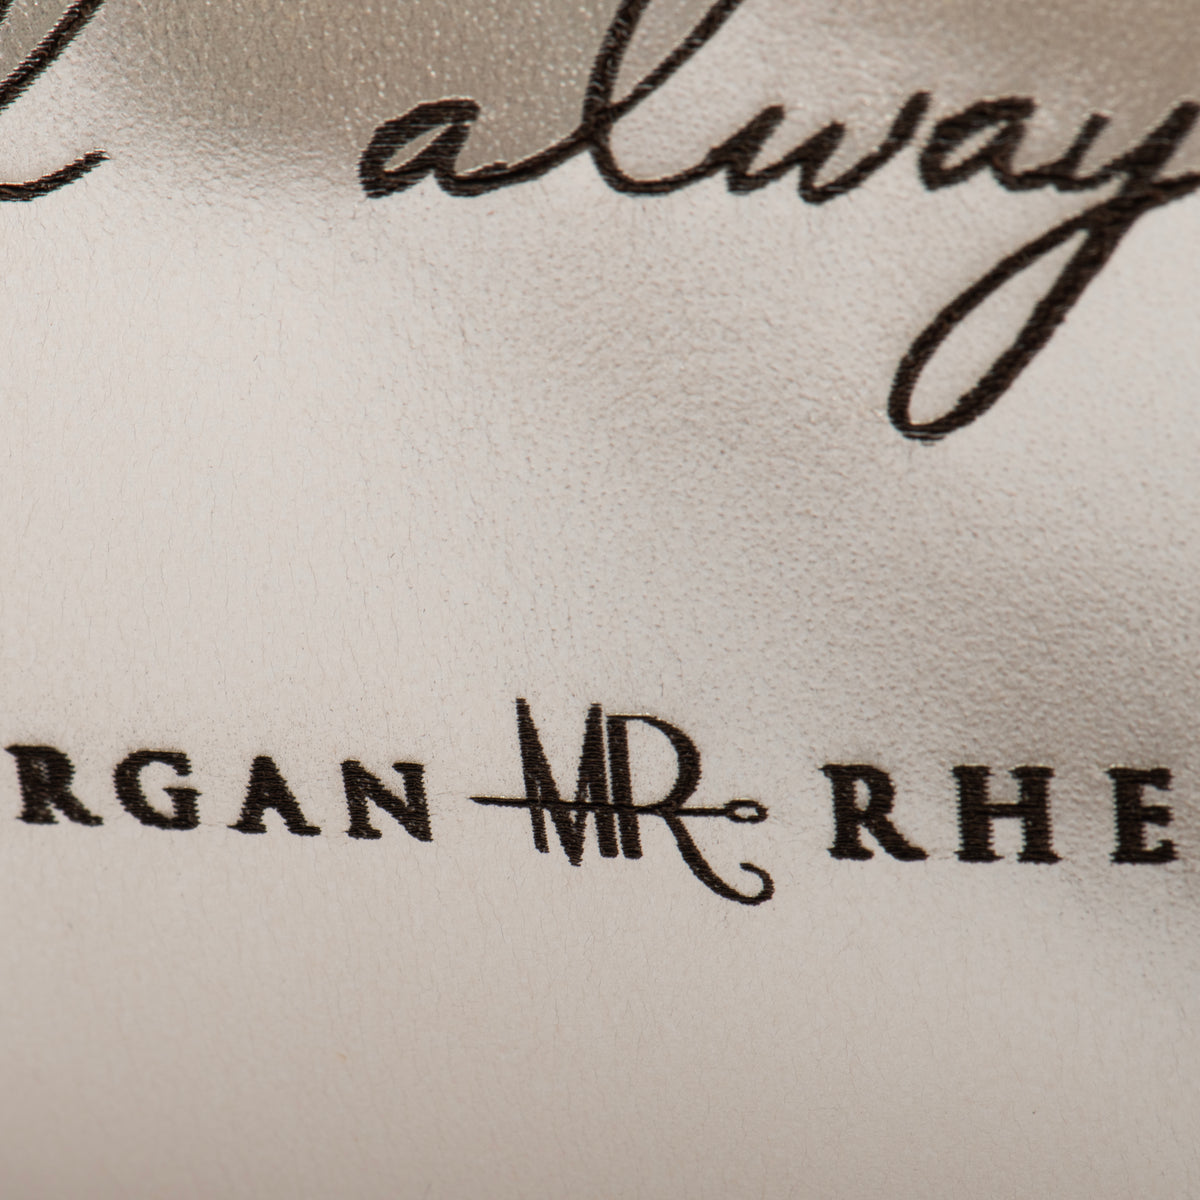 alway
RGAN MR RHE